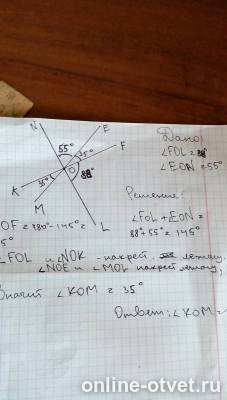 N
E
55°
35°
F
O
88°
K
35°
M
L
Дано:
∠FOL = 88°
∠EON = 55°
Решение:
∠FOL + EON =
88° + 55° = 145°
OF = 180° - 145° =
5°
∠FOL и ∠NOK - накрест лежащ,
∠NOE и ∠MOL накрест лежащ,
Значит ∠KOM = 35°
Ответ: ∠KOM =
online-otvet.ru